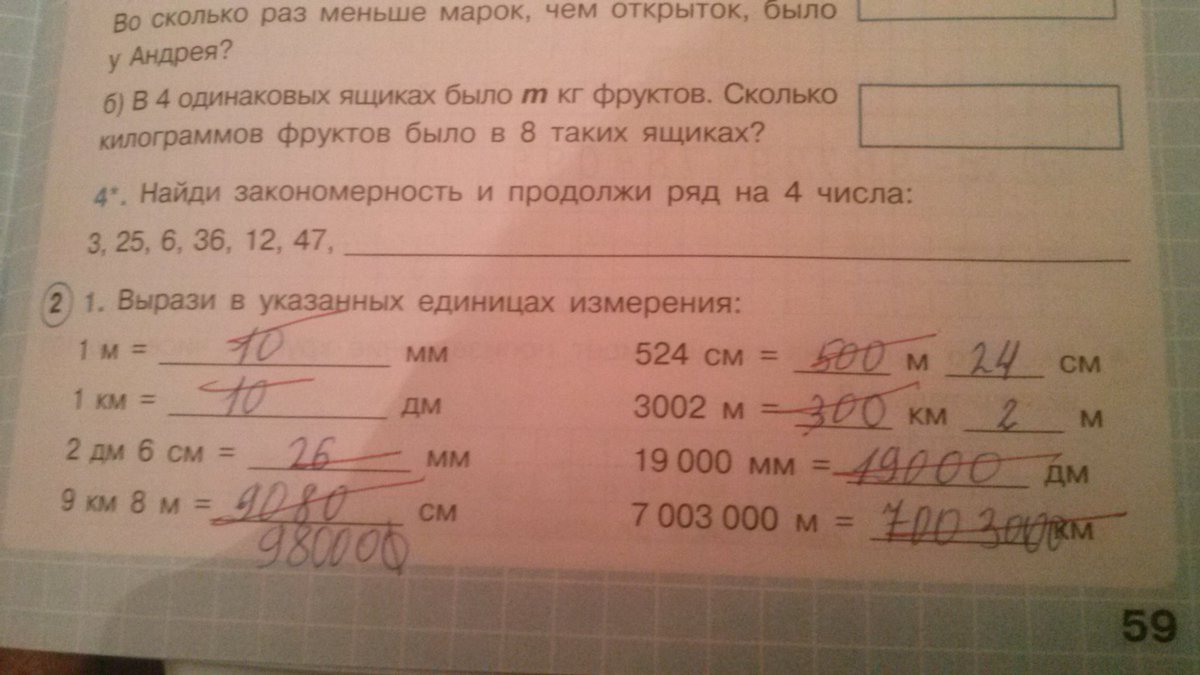 Во сколько раз меньше марок, чем открыток, было
у Андрея?
б) В 4 одинаковых ящиках было m кг фруктов. Сколько
килограммов фруктов было в 8 таких ящиках?
4*. Найди закономерность и продолжи ряд на 4 числа:
3, 25, 6, 36, 12, 47,
2 1. Вырази в указанных единицах измерения:
1 м = 10 мм
1 км = 10 дм
2 дм 6 см = 26 мм
9 км 8 м = 9080 см
98000
524 см = 500 м 24 см
3002 м = 300 км 2 м
19 000 мм = 19000 дм
7 003 000 м = 700 3000 км
59